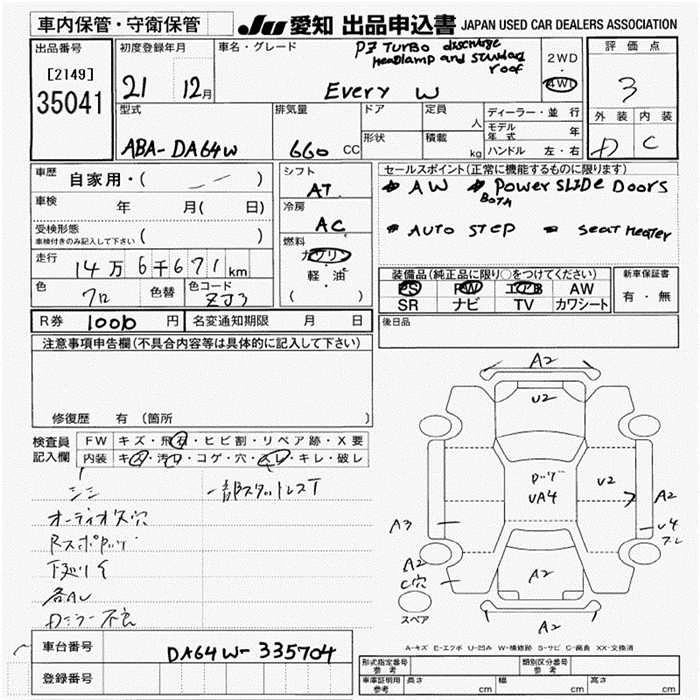 車内保管・守衛保管
JU 愛知 出品申込書 JAPAN USED CAR DEALERS ASSOCIATION
出品番号
[2149]
35041
初度登録年月
21 12月
車名・グレード
PZ TURBO discharge
headlamp and standard
roof
Every W
2WD
4WD
評価点
3
外装 内装
D C
型式
ABA-DA64W
排気量
660 CC
ドア
形状
定員
人
積載
kg
ディーラー・並行
モデル年式 年
ハンドル 左・右
車歴 自家用・( )
車検 年 月( 日)
受検形態
車検付きのみ記入して下さい ( )
走行 14万6千671km
色 クロ 色替 色コード ZJ3
シフト
AT
冷房
AC
燃料
ガソリン
軽・油
( )
セールスポイント(正常に機能するものに限ります)
* AW * Power SLIDE Doors
BOTH
* AUTO STEP * Seat Heater
装備品(純正品に限り○をつけてください)
PS PW エアB AW
SR ナビ TV カワシート
新車保証書
有・無
R券 10010 円 名変通知期限 月 日
後日品
注意事項申告欄(不具合内容等は具体的に記入して下さい)
修復歴 有 (箇所 )
検査員
記入欄
FW キズ・飛石・ヒビ割・リペア跡・X要
内装 キズ・汚れ・コゲ・穴・スレ・キレ・破レ
シミ 一部スタットレスT
オーディオ欠穴
下廻りサビ
Dミラー不良
A2
U2
ロッグ
UA4
U2
A2
U4
スレ
A3
A2
C穴
A2
A2
スペア
A-キズ E-エクボ U-凹み W-補修跡 S-サビ C-腐食 XX-交換済
車台番号 DA64W-335704
登録番号
形式指定番号
参考
類別区分番号
参考
車庫証明用
参考
長さ cm 幅 cm 高さ cm